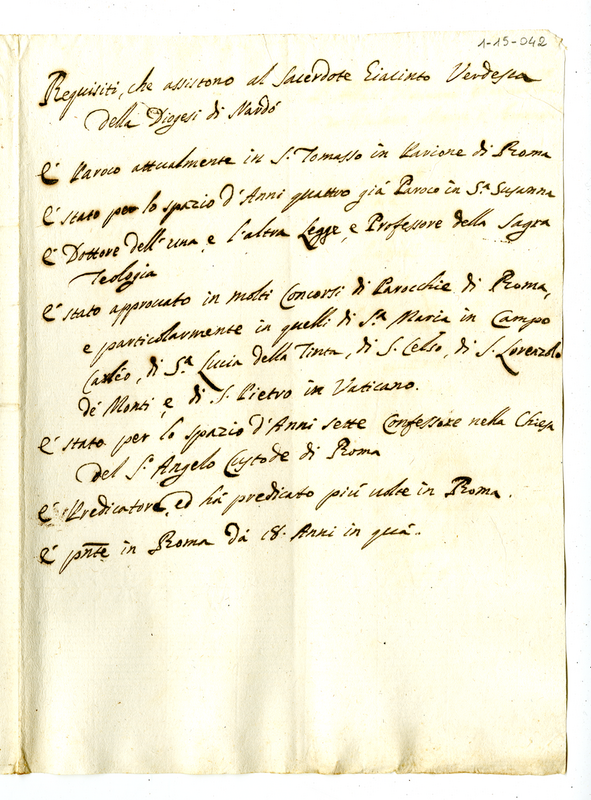 1-15-042
Requisiti, che assistono al Sacerdote Giacinto Verdesca
della Diogesi di Nardó
É Paroco attualmente in S. Tomasso in Parione di Roma
É stato per lo spazio d'Anni quattro giá Paroco in S.a Susanna
É Dottore dell'una, e l'altra Legge, e Professore della Sagra
Teologia
É stato approuato in molti Concorsi di Parocchie di Roma,
e particolarmente in quelli di S.a Maria in Campo
Carléo, di S.a Lucia della Tinta, di S. Celso, di S. Lorenzolo
dé Monti, e di S. Pietro in Vaticano.
É stato per lo spazio d'Anni sette Confessore nella Chiesa
del S. Angelo Custode di Roma
É Predicatore, ed há predicato piú uolte in Roma.
É pnte in Roma dá 18. Anni in quá.